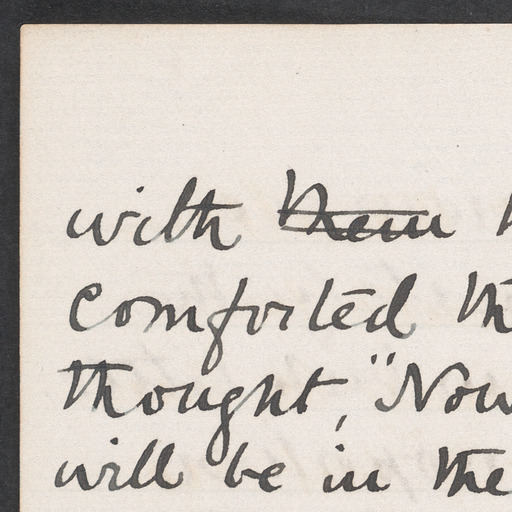 with them
comforted th
thought, "Now
will be in the